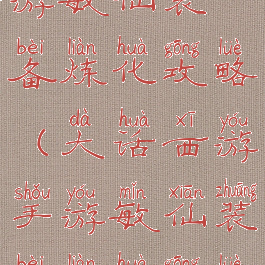 游敏仙装
bèi liàn huà gōng lüè
备炼化攻略
dà huà xī yóu
（大话西游
shǒu yóu mǐn xiān zhuāng
手游敏仙装
bèi liàn huà gōng lüè